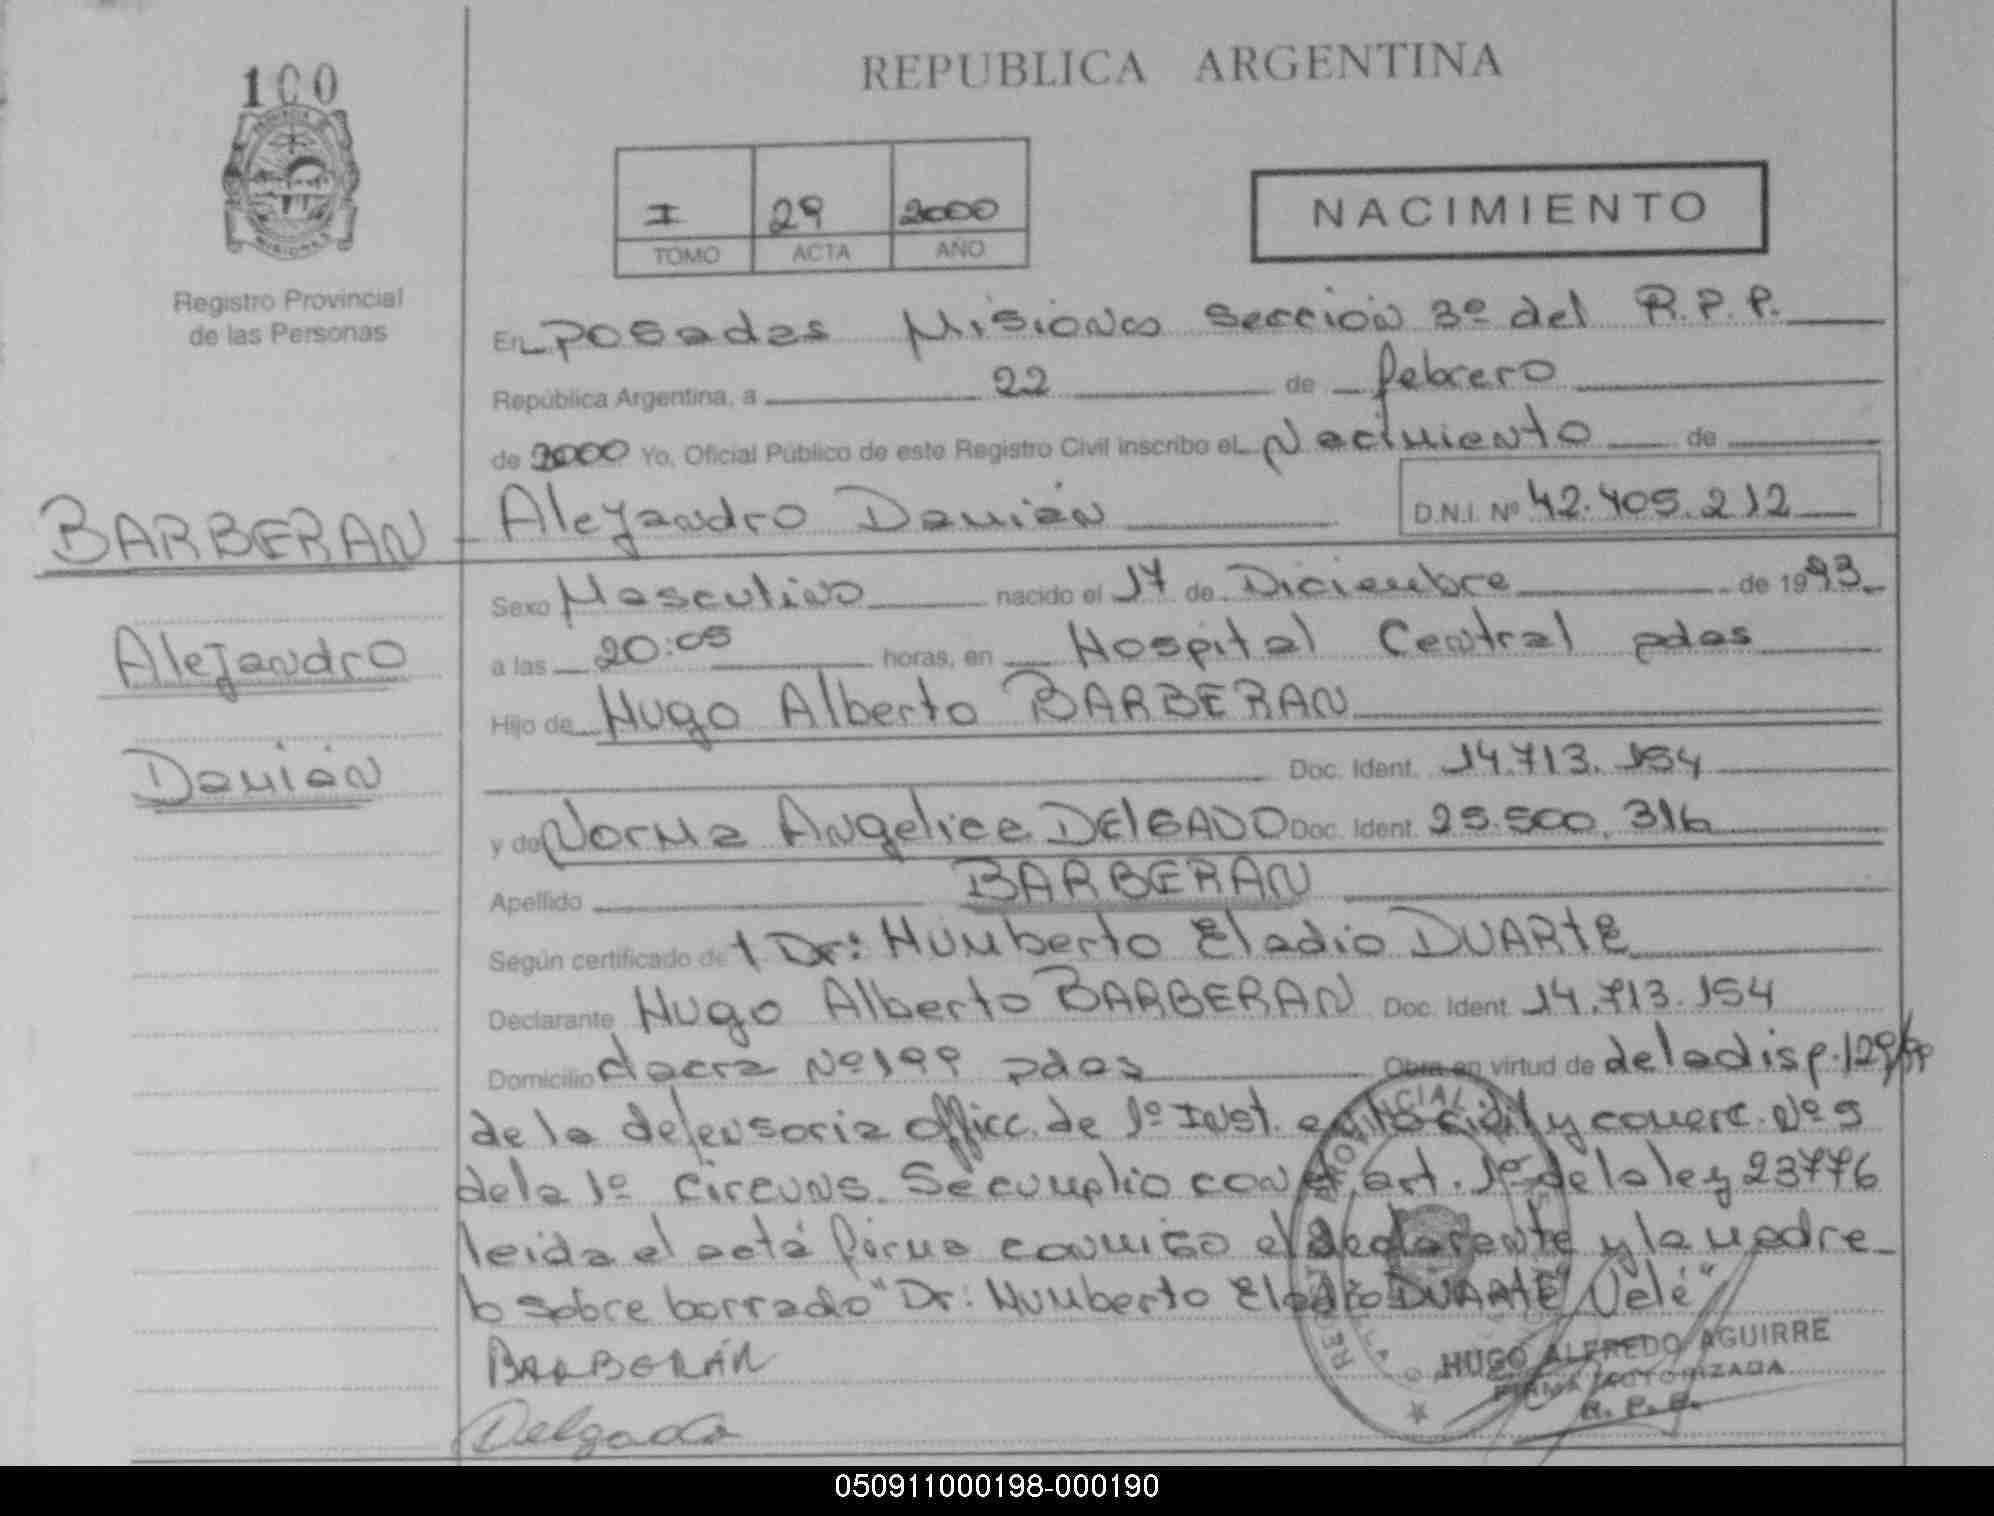 100
PROVINCIA DE
MISIONES
Registro Provincial
de las Personas
REPUBLICA ARGENTINA
I 29 2000
TOMO ACTA AÑO
NACIMIENTO
En Posadas Misiones Sección 3º del R.P.P.
República Argentina, a 22 de febrero
de 2000 Yo, Oficial Público de este Registro Civil inscribo el Nacimiento de
BARBERAN Alejandro Damián D.N.I. Nº 42.405.212
Sexo Masculino nacido el 17 de Diciembre de 1993
Alejandro
a las 20:05 horas, en Hospital Central pdas
Hijo de Hugo Alberto BARBERAN
Damián
Doc. Ident. 14.713.154
y de Norma Angelica DELGADO Doc. Ident. 25.500.316
Apellido BARBERAN
Según certificado de Dr: Humberto Eladio DUARTE
Declarante Hugo Alberto BARBERAN Doc. Ident. 14.713.154
Domicilio chacra Nº 199 pdas Obra en virtud de de la disp.
de la defensoria de 1º Inst. civil y comerc. Nº 5
de la 1º circuns. Se cumplio con art. 1º de la ley 23776
leida el acta firma conmigo el declarante y la madre
lo sobre borrado "Dr: Humberto Eladio DUARTE" Vale"
BARBERÁN
HUGO ALFREDO AGUIRRE
FIRMA AUTORIZADA
R. P. P.
Delgado
050911000198-000190